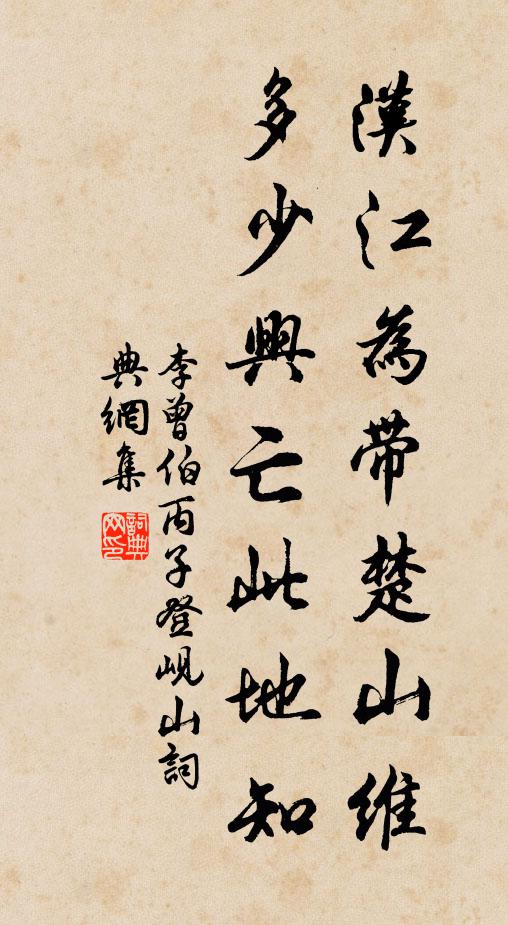 漢江為帶楚山維
多少興亡此地知
李曾伯丙子登峴山詞
典網集
詞典網印